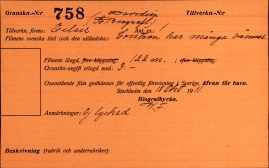 Gransk.-N:r 758 Tillverkn.-N:r
Tillverkn. firma: Eclair
Filmens svenska titel (och den utländska): Tontolini har många vänner
Filmens längd, före klippning: 122 m. ; efter klippning:
Gransknr.-avgift erlagd med: 3 -
Ovanstående film godkännes för offentlig förevisning i Sverige, även för barn.
Stockholm den 18 Okt 1911
Biografbyrån.
Anmärkningar: Ej lyckad
Beskrivning (rubrik och underrubriker):